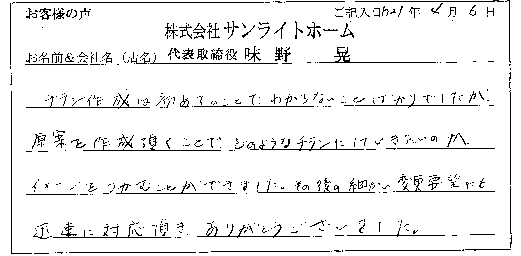 お客様の声 ご記入日 H21 年 4 月 6 日
株式会社 サンライトホーム
お名前&会社名（店名） 代表取締役 味野 晃
チラシ作成は初めてのことでわからないことばかりでしたが、
原案を作成頂くことでどのようなチラシにしていきたいのか、
イメージをつかむことができました。その後の細かい変更要望にも
迅速に対応頂き ありがとうございました。